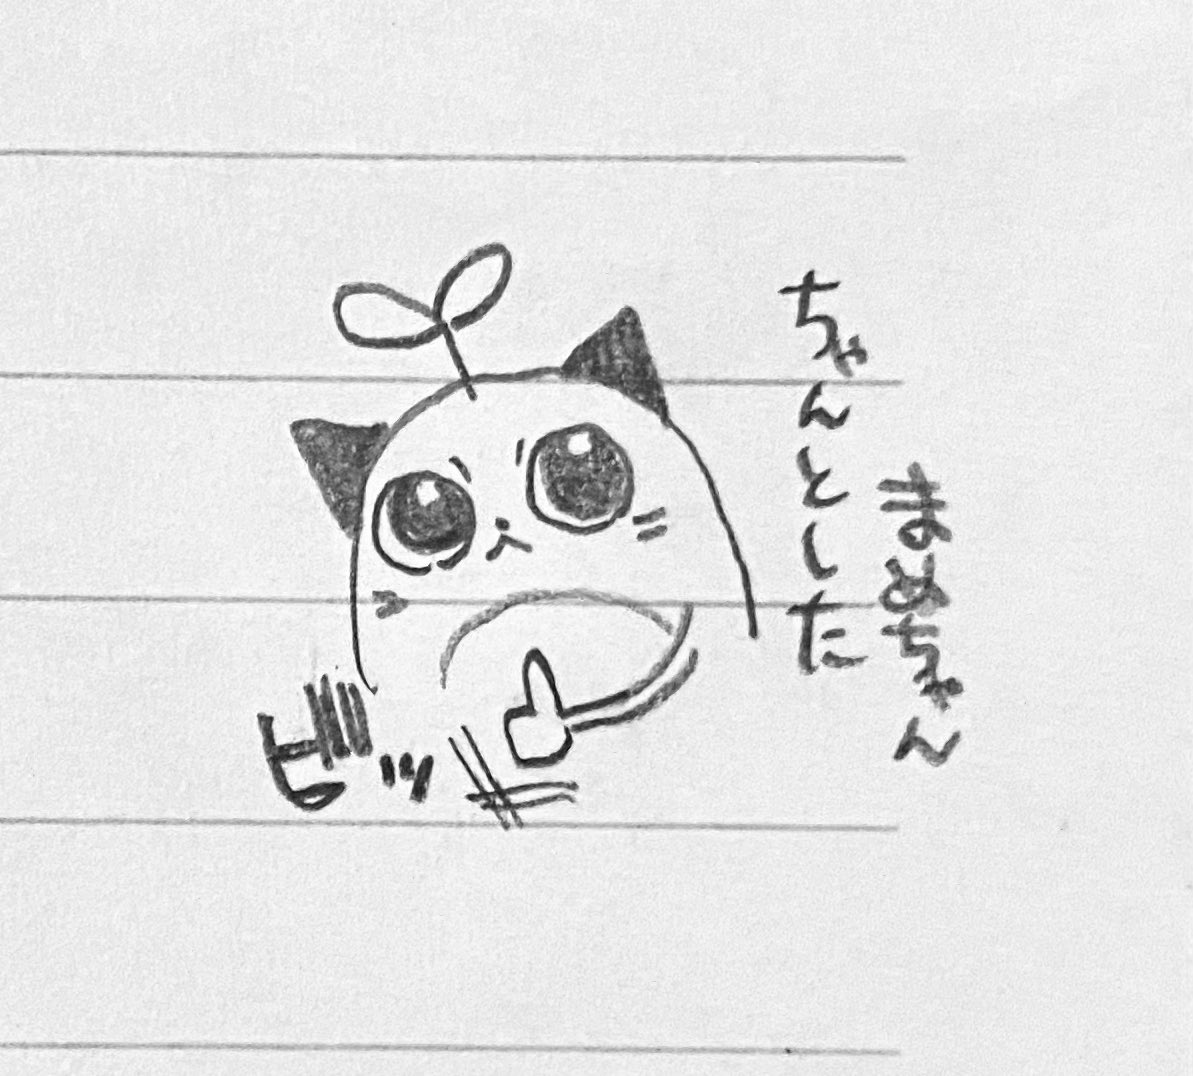 まめちゃん
ちゃんとした
ビッ